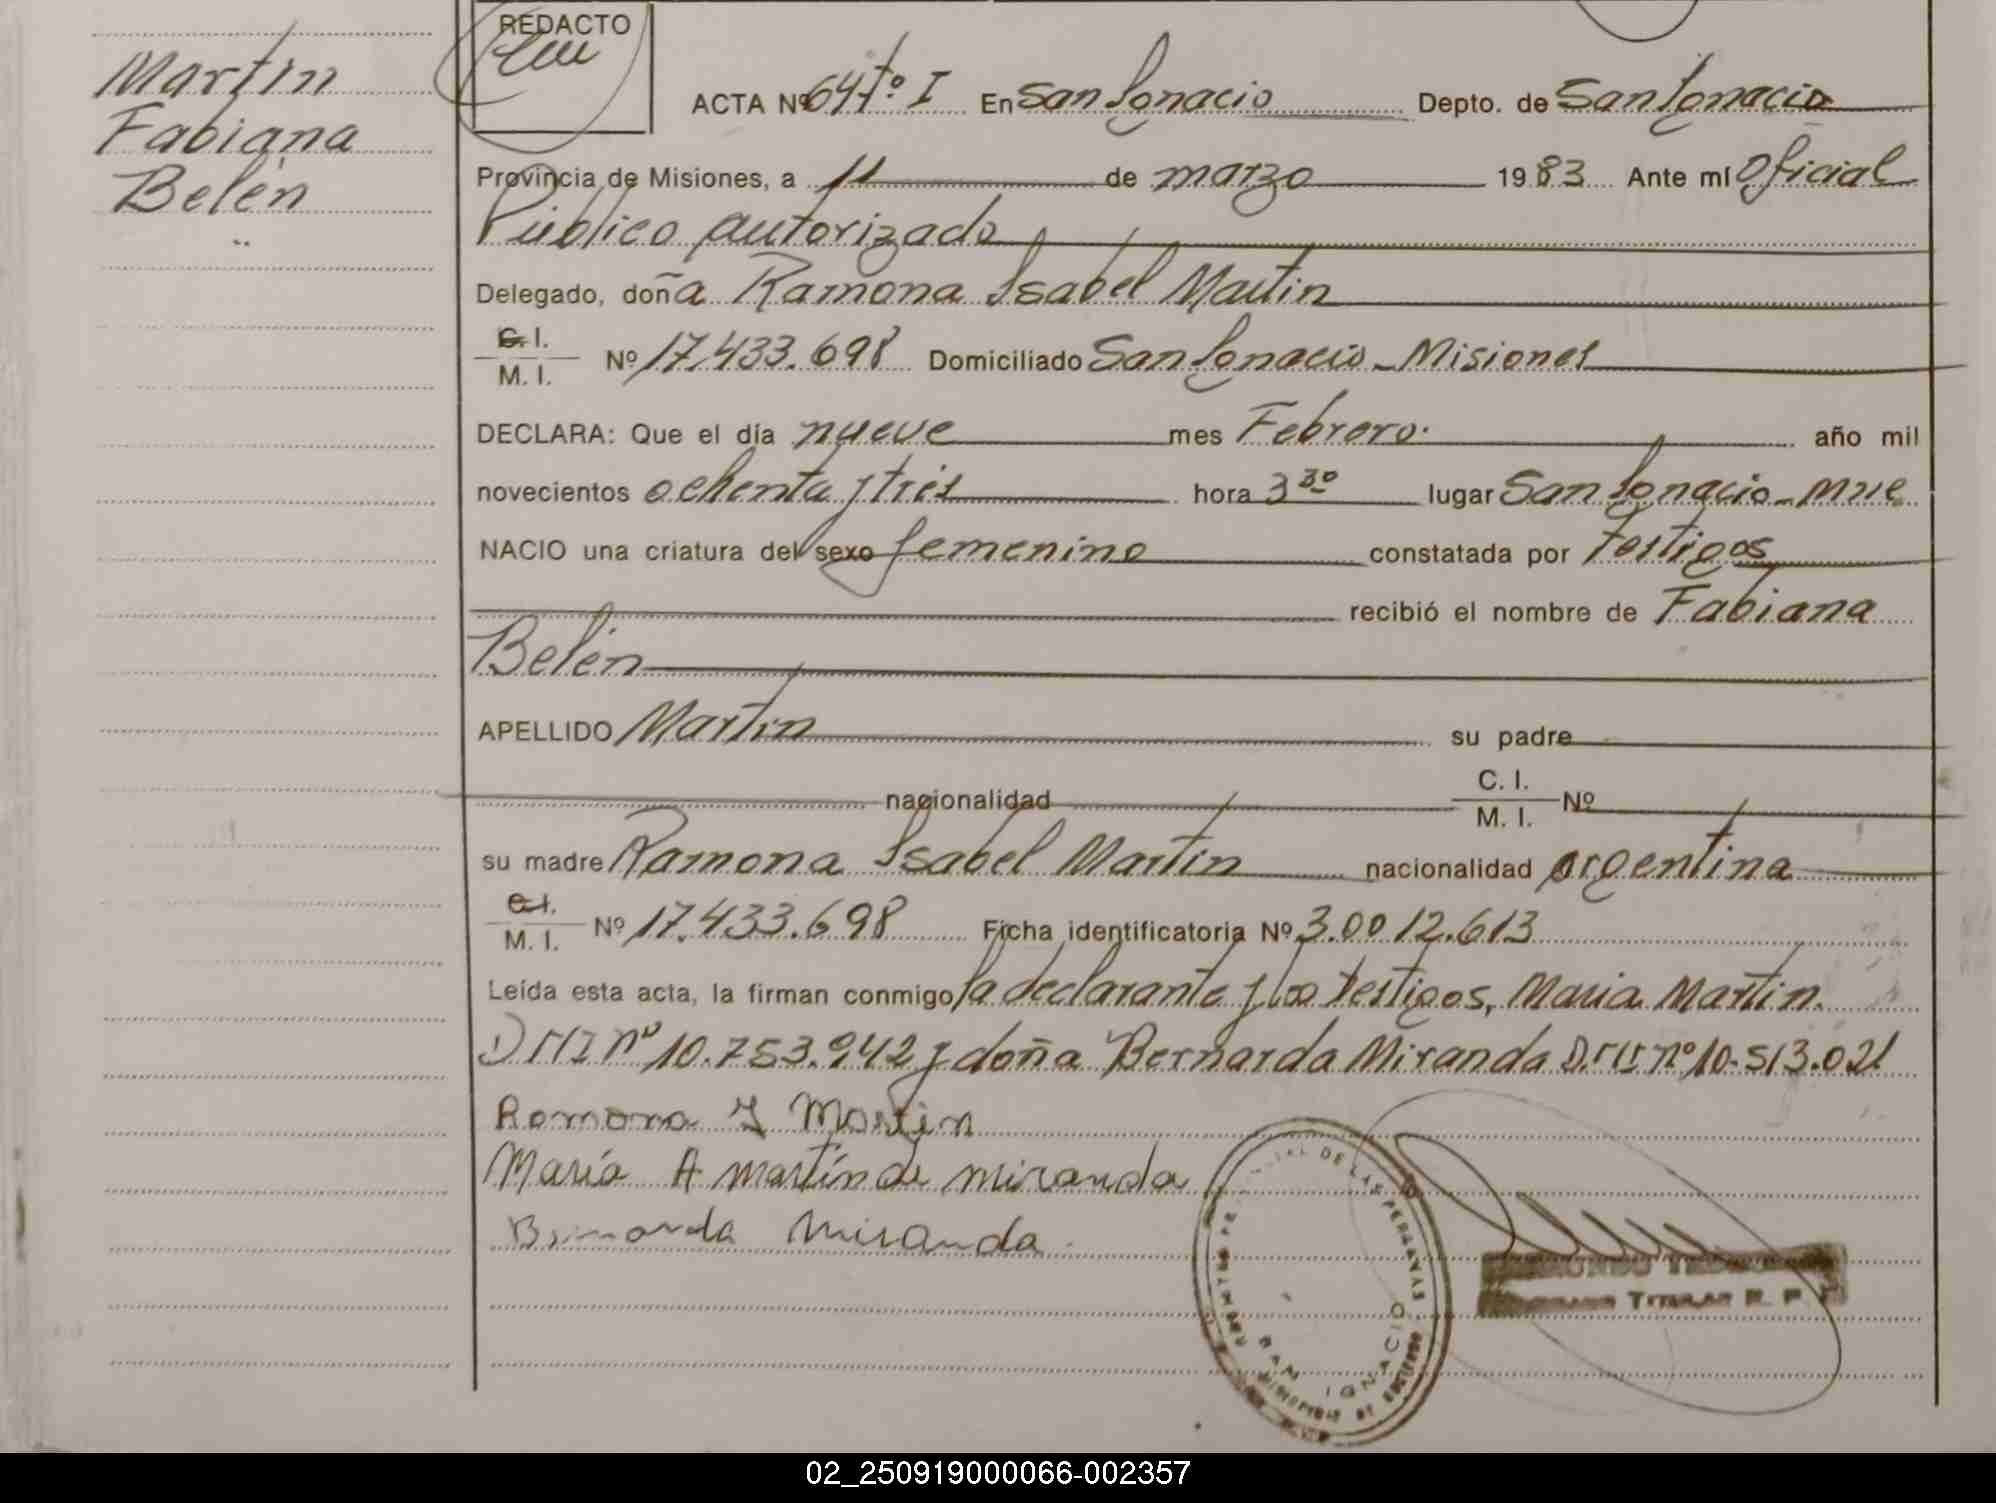 REDACTO
Martin
Fabiana
Belén
ACTA Nº 64 tº I En San Ignacio Depto. de San Ignacio
Provincia de Misiones, a 11 de marzo 1983 Ante mí Oficial
Público autorizado
Delegado, doña Ramona Isabel Martin
C. I.
M. I. Nº 17.433.698 Domiciliado San Ignacio - Misiones
DECLARA: Que el día nueve mes Febrero. año mil
novecientos ochenta y tres hora 3 30 lugar San Ignacio - Mnes
NACIO una criatura del sexo femenino constatada por testigos
recibió el nombre de Fabiana
Belén
APELLIDO Martin su padre
nacionalidad C. I.
M. I. Nº
su madre Ramona Isabel Martin nacionalidad argentina
C. I.
M. I. Nº 17.433.698 Ficha identificatoria Nº 3.00 12.613
Leída esta acta, la firman conmigo la declarante y los testigos, Maria Martin.
DNI nº 10.753.942 y doña Bernarda Miranda D.N.I. nº 10.513.021
Ramona I Martin
María A martín de miranda
Bernarda Miranda
DE LAS PERSONAS
SAN IGNACIO
TITULAR R. P.
02_250919000066-002357